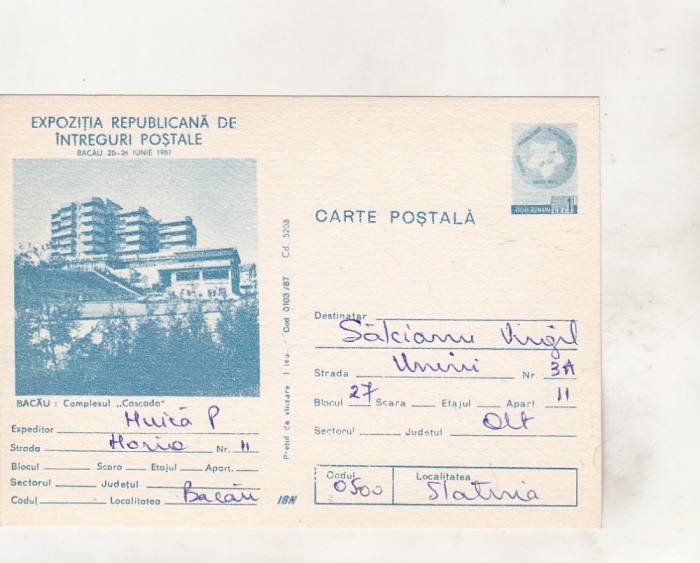 EXPOZIȚIA REPUBLICANĂ DE
ÎNTREGURI POȘTALE
BACĂU 20-26 IUNIE 1987
BACĂU : Complexul „Cascada"
Expeditor Huică P
Strada Horia Nr. 11
Blocul Scara Etajul Apart.
Sectorul Județul
Codul Localitatea Bacău
Prețul de vînzare 1 leu. Cod 0103/87 Cd. 5208
IBN
POȘTA ROMÂNĂ 1L
CARTE POȘTALĂ
Destinatar Sălcianu Virgil
Strada Unirii Nr. 3A
Blocul 27 Scara Etajul Apart. 11
Sectorul Județul Olt
Codul Localitatea
0500 Slatina